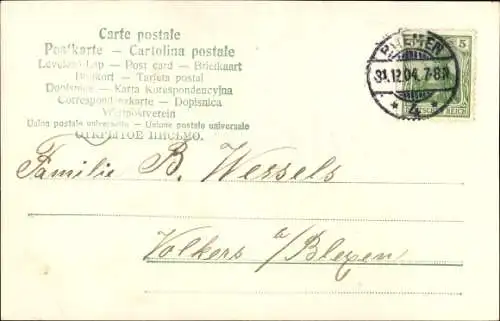 Carte postale
Postkarte — Cartolina postale
Levelező-Lap — Post card — Briefkaart
Brefkort — Tarjeta postal
Dopisnice — Karta Korespondencyjna
Correspondenzkarte — Dopisnica
Weltpostverein
Unione postale universale — Union postale universelle
ОТКРЫТОЕ ПИСЬМО.
BREMEN
31.12.04. 7-8N
* 4 *
5
REICH
Familie B. Wessels
Volkers a/Blexen